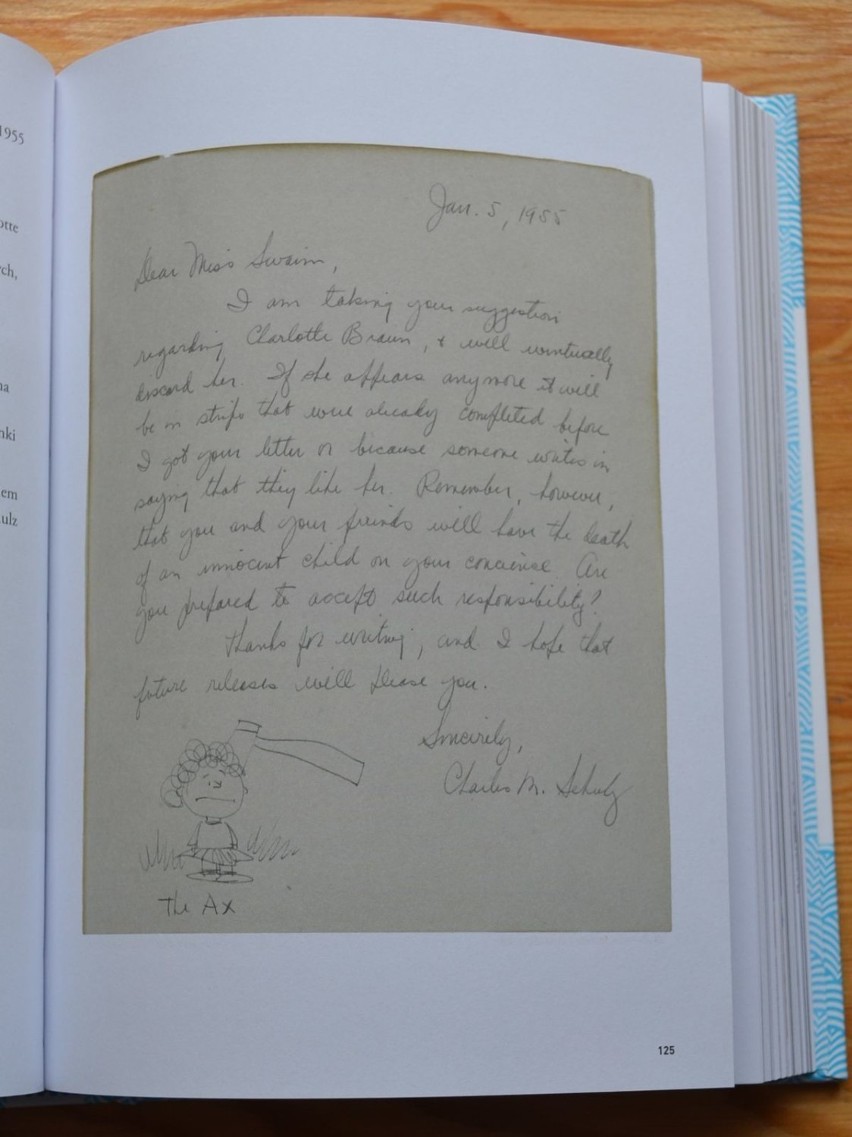 1955
otte
ch,
na
nki
em
ulz
Jan. 5, 1955
Dear Miss Swaim,
I am taking your suggestion
regarding Charlotte Braun, & will eventually
discard her. If she appears anymore it will
be in strips that were already completed before
I got your letter or because someone writes in
saying that they like her. Remember, however,
that you and your friends will have the death
of an innocent child on your conscience. Are
you prepared to accept such responsibility?
Thanks for writing, and I hope that
future releases will please you.
Sincerely,
Charles M. Schulz
The Ax
125